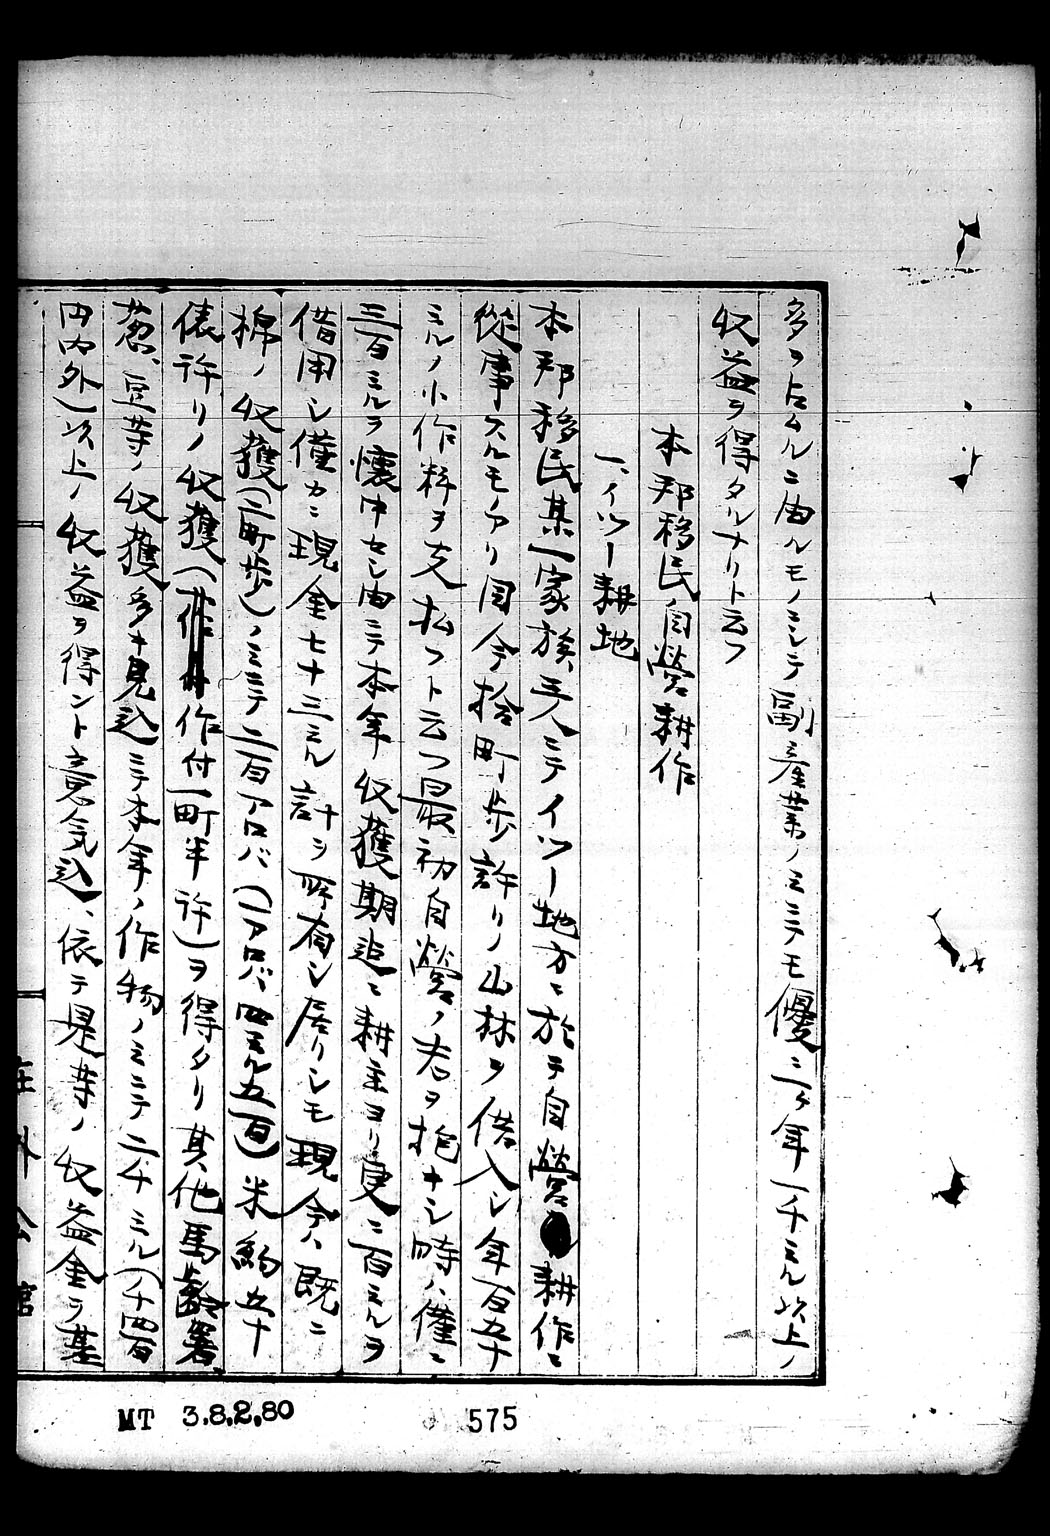 多ヲ占ムルニ由ルモノニシテ副産業ノミニテモ優ニ一ケ年一千ミル以上ノ
収益ヲ得タルナリト云フ
本邦移民自営耕作
一、イツー耕地
本邦移民某一家族三人ニテイツー地方ニ於テ自営耕作ニ
従事スルモノアリ目今拾町歩許リノ山林ヲ借入シ年百五十
ミルノ小作料ヲ支払フト云フ最初自営ノ志ヲ抱キシ時ハ僅ニ
三百ミルヲ懐中セシ由ニテ本年収獲期迄ニ耕主ヨリ更ニ百ミルヲ
借用シ僅カニ現金七十三ミル計ヲ所有シ居リシモ現今ハ既ニ
棉ノ収獲(二町歩)ノミニテ二百アロバ(一アロバ四ミル五百)米約五十
俵許リノ収獲(作付一町半許)ヲ得タリ其他馬齢署、
葱、豆等ノ収獲多キ見込ニテ本年ノ作物ノミニテ二千ミル(一千四百
円内外)以上ノ収益ヲ得ント意気込、依テ是等ノ収益金ヲ基
在外公館
MT 3.8.2.80
575